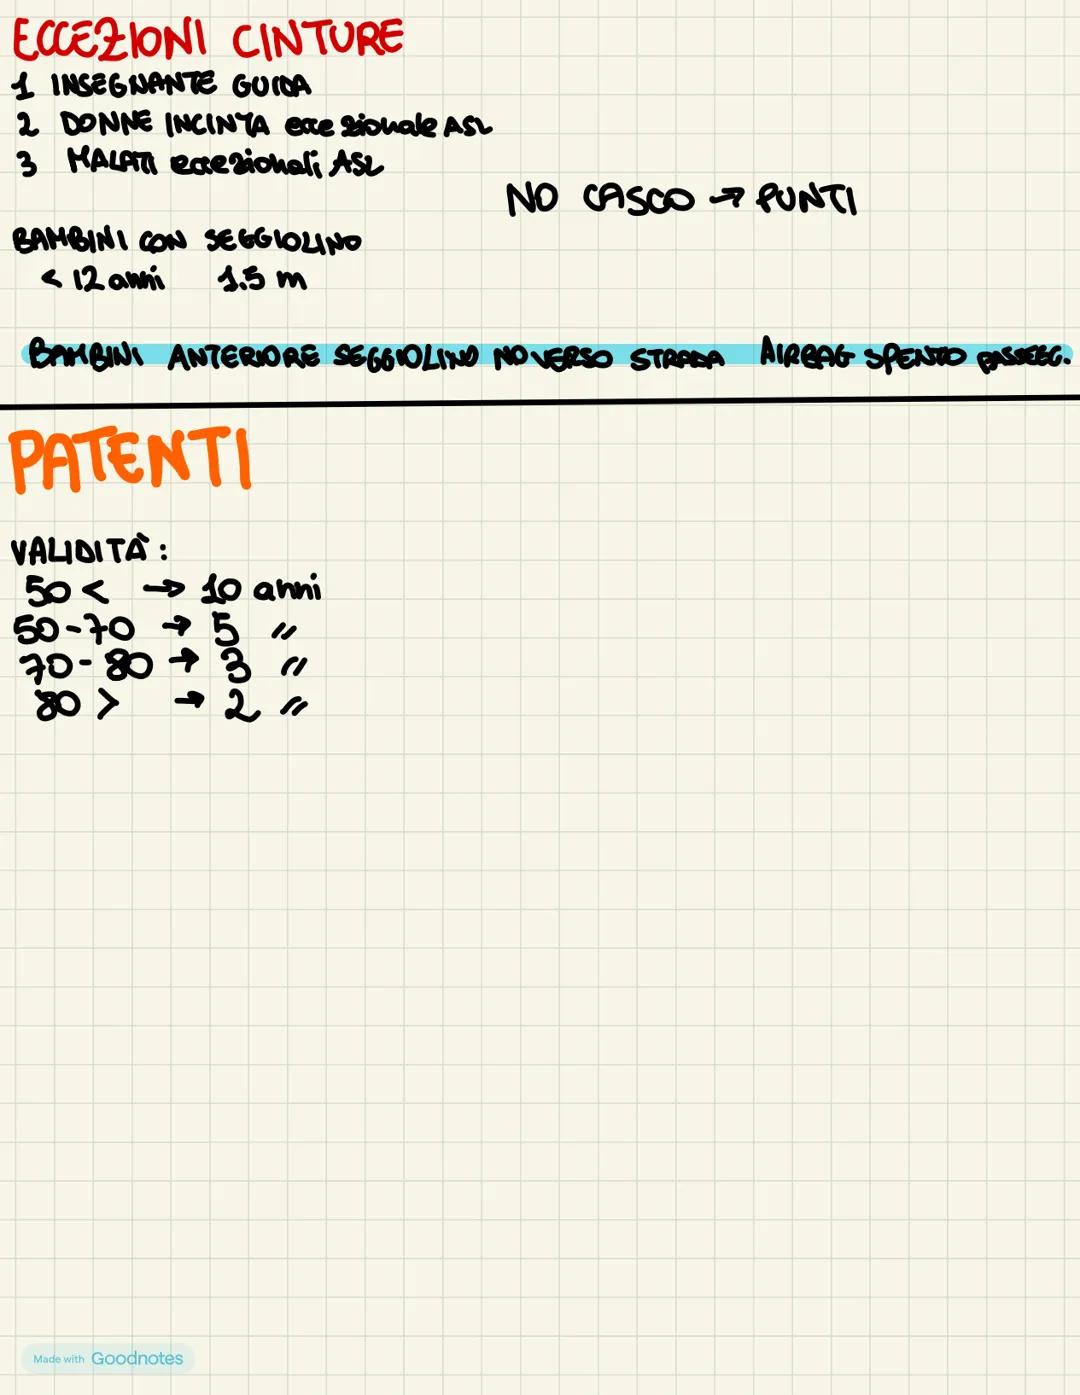 ECCEZIONI CINTURE
1 INSEGNANTE GUIDA
2 DONNE INCINTA eccezionale ASL
3 MALATI eccezionali ASL
NO CASCO → PUNTI
BAMBINI CON SEGGIOLINO
< 12 anni 1.5 m
BAMBINI ANTERIORE SEGGIOLINO NO VERSO STRADA AIRBAG SPENTO PASSEGG.
PATENTI
VALIDITÀ:
50 < → 10 anni
50-70 → 5 "
70-80 → 3 "
80 > → 2 "
Made with Goodnotes